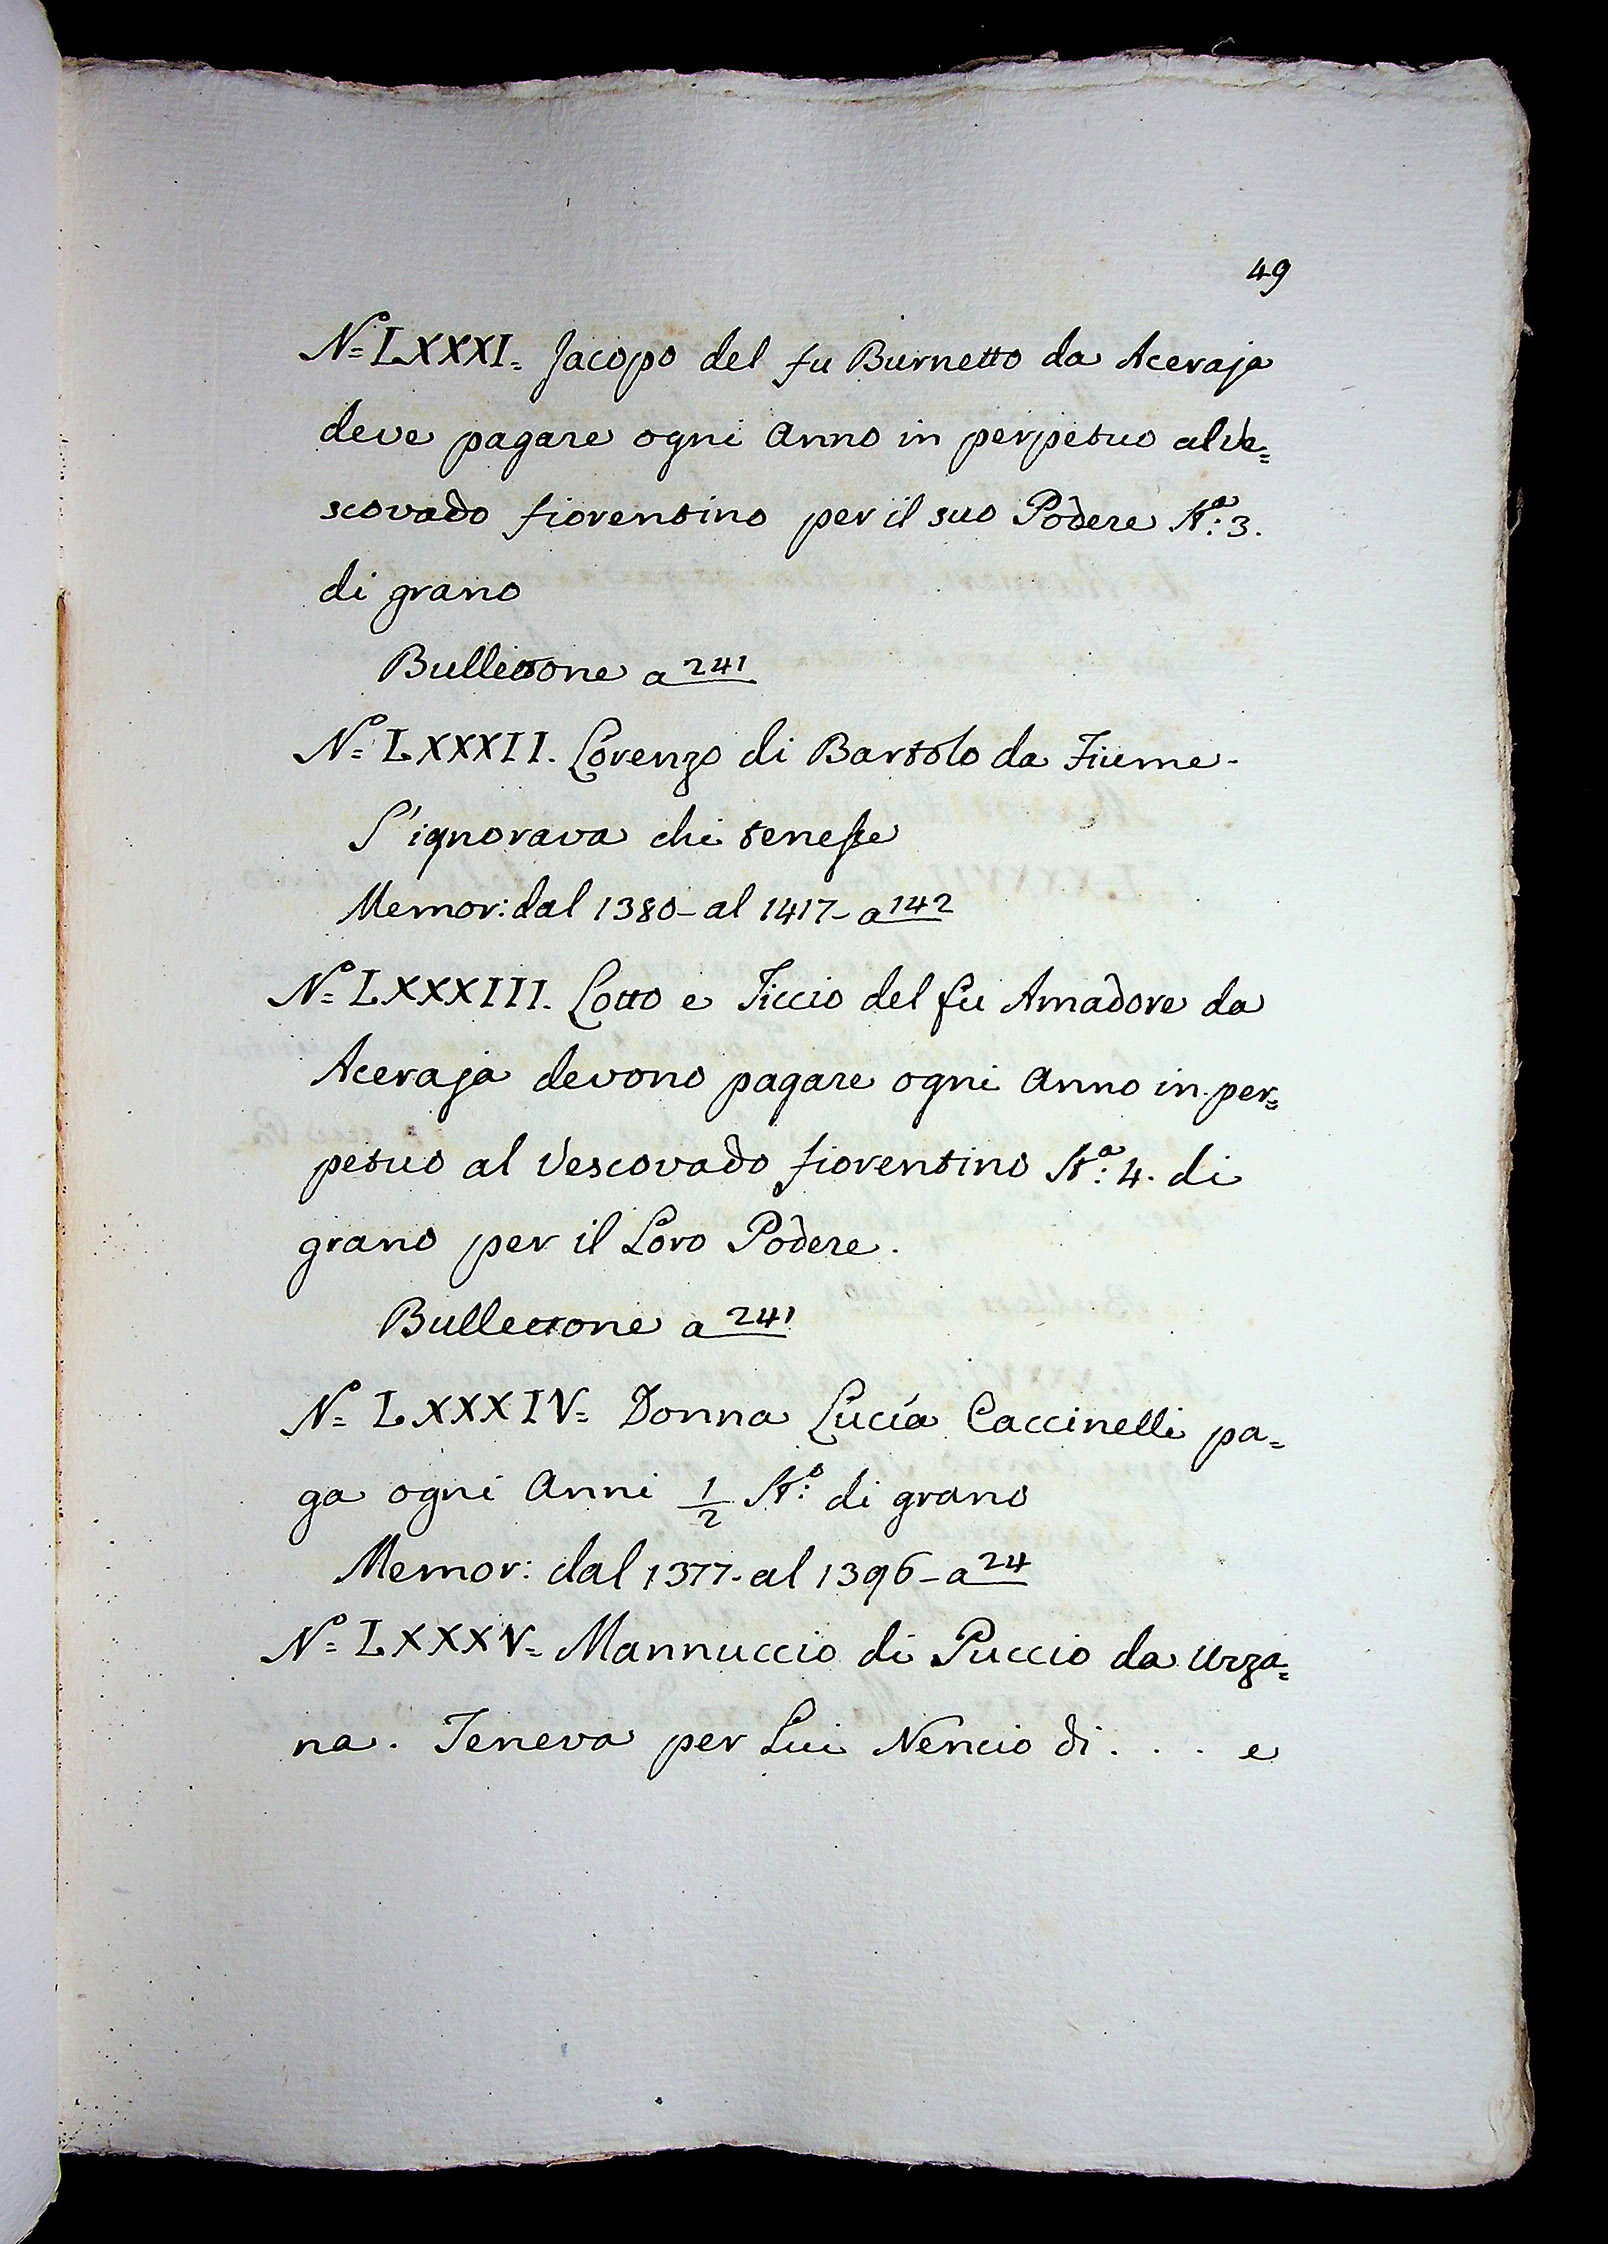 49
Nº= LXXXI= Jacopo del fu Burnetto da Aceraja
deve pagare ogni Anno in perpetuo al Ve=
scovado fiorentino per il suo Podere Stª: 3.
di grano
Bullettone a 241
Nº= LXXXII. Lorenzo di Bartolo da Fiume-
S'ignorava chi tenesse
Memor: dal 1380- al 1417- a 142
Nº= LXXXIII. Lotto e Ticcio del fu Amadore da
Aceraja devono pagare ogni Anno in per=
petuo al Vescovado fiorentino Stª: 4. di
grano per il Loro Podere.
Bullettone a 241
Nº= LXXXIV= Donna Lucía Caccinelli pa=
ga ogni Anni 1/2 Stº: di grano
Memor: dal 1377- al 1396- a 24
Nº= LXXXV= Mannuccio di Puccio da Urza=
na. Teneva per Lui Nencio di . . . e